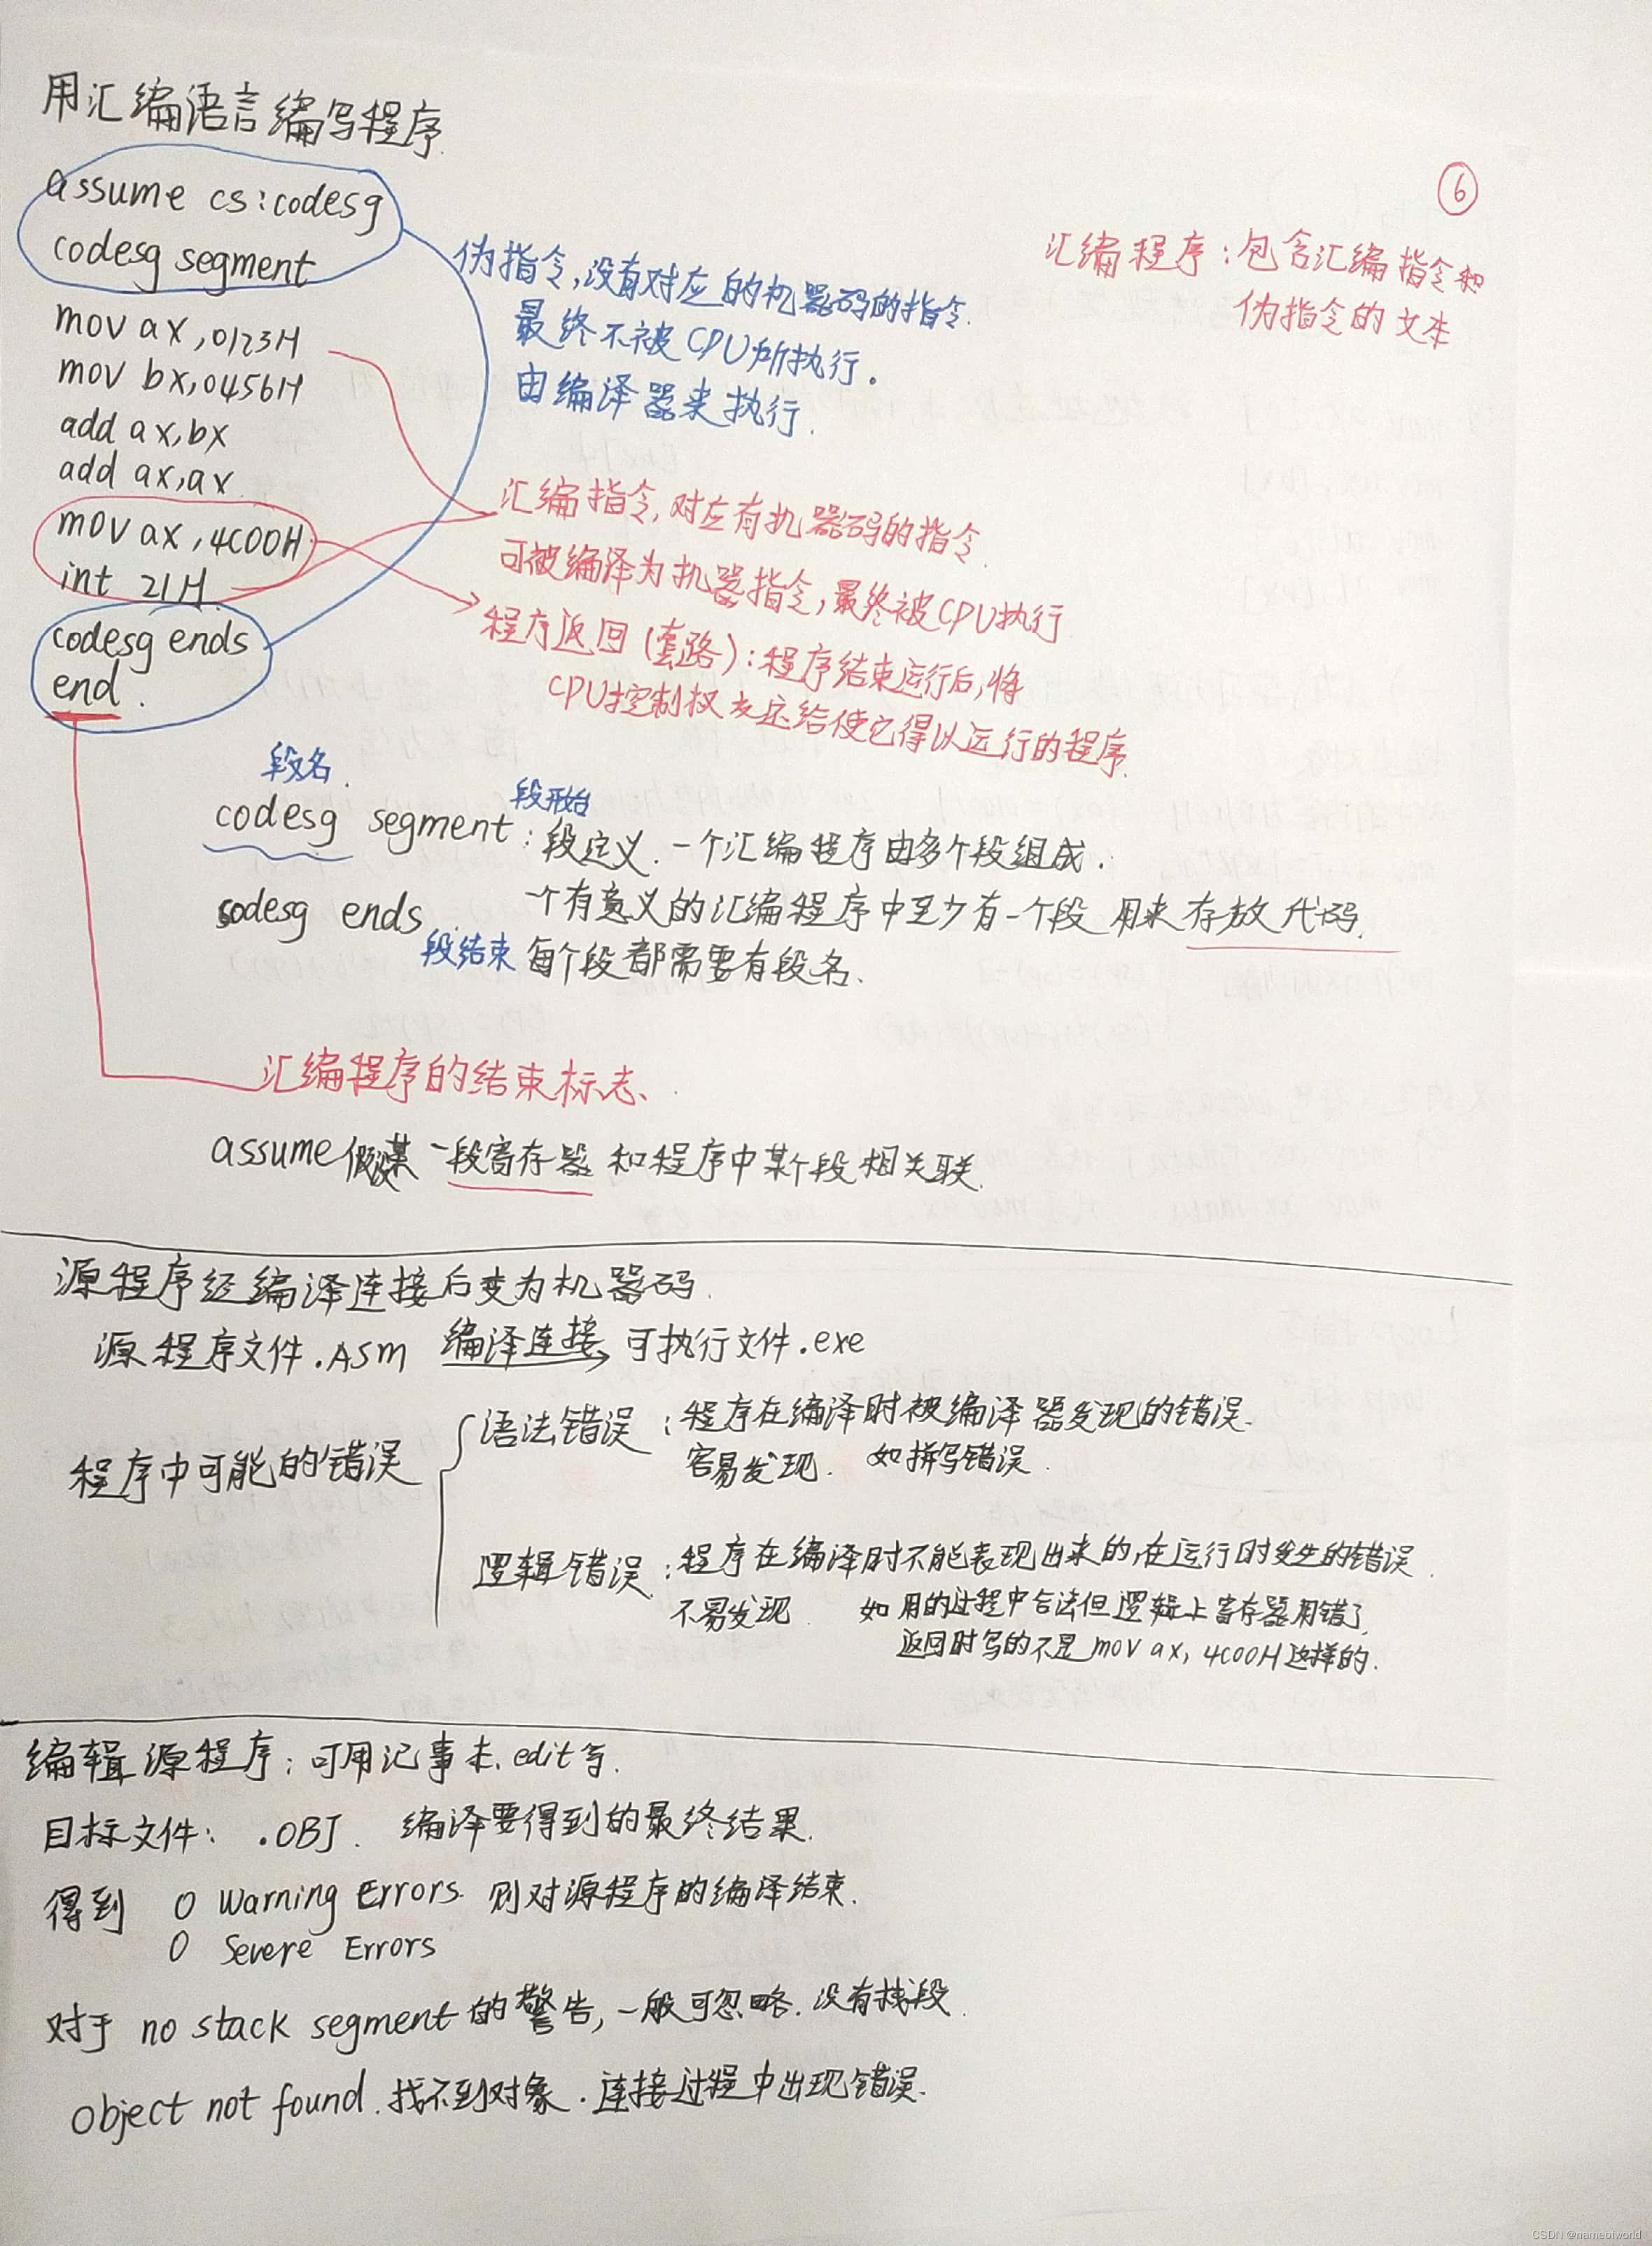 用汇编语言编写程序.
⑥
assume cs:codesg
codesg segment
mov ax,0123H
mov bx,0456H
add ax,bx
add ax,ax
mov ax,4C00H
int 21H
codesg ends
end.
伪指令,没有对应的机器码的指令.
最终不被CPU所执行.
由编译器来执行.
汇编程序:包含汇编指令和
伪指令的文本
汇编指令,对应有机器码的指令
可被编译为机器指令,最终被CPU执行
程序返回(套路):程序结束运行后,将
CPU控制权交还给使它得以运行的程序.
段名.
段开始
codesg segment:段定义.一个汇编程序由多个段组成.
codesg ends 一个有意义的汇编程序中至少有一个段 用来存放代码.
段结束 每个段都需要有段名.
汇编程序的结束标志、
assume假设某一段寄存器和程序中某个段相关联.
源程序经编译连接后变为机器码.
源程序文件.ASM 编译连接 可执行文件.exe
程序中可能的错误
语法错误:程序在编译时被编译器发现的错误.
容易发现. 如拼写错误.
逻辑错误:程序在编译时不能表现出来的,在运行时发生的错误.
不易发现. 如用的过程中合法但逻辑上寄存器用错了,
返回时写的不是mov ax,4C00H这样的.
编辑源程序:可用记事本.edit等.
目标文件: .OBJ. 编译要得到的最终结果.
得到 0 Warning Errors 则对源程序的编译结束.
0 Severe Errors
对于 no stack segment的警告,一般可忽略.没有栈段.
object not found.找不到对象.连接过程中出现错误.
CSDN @nameofworld